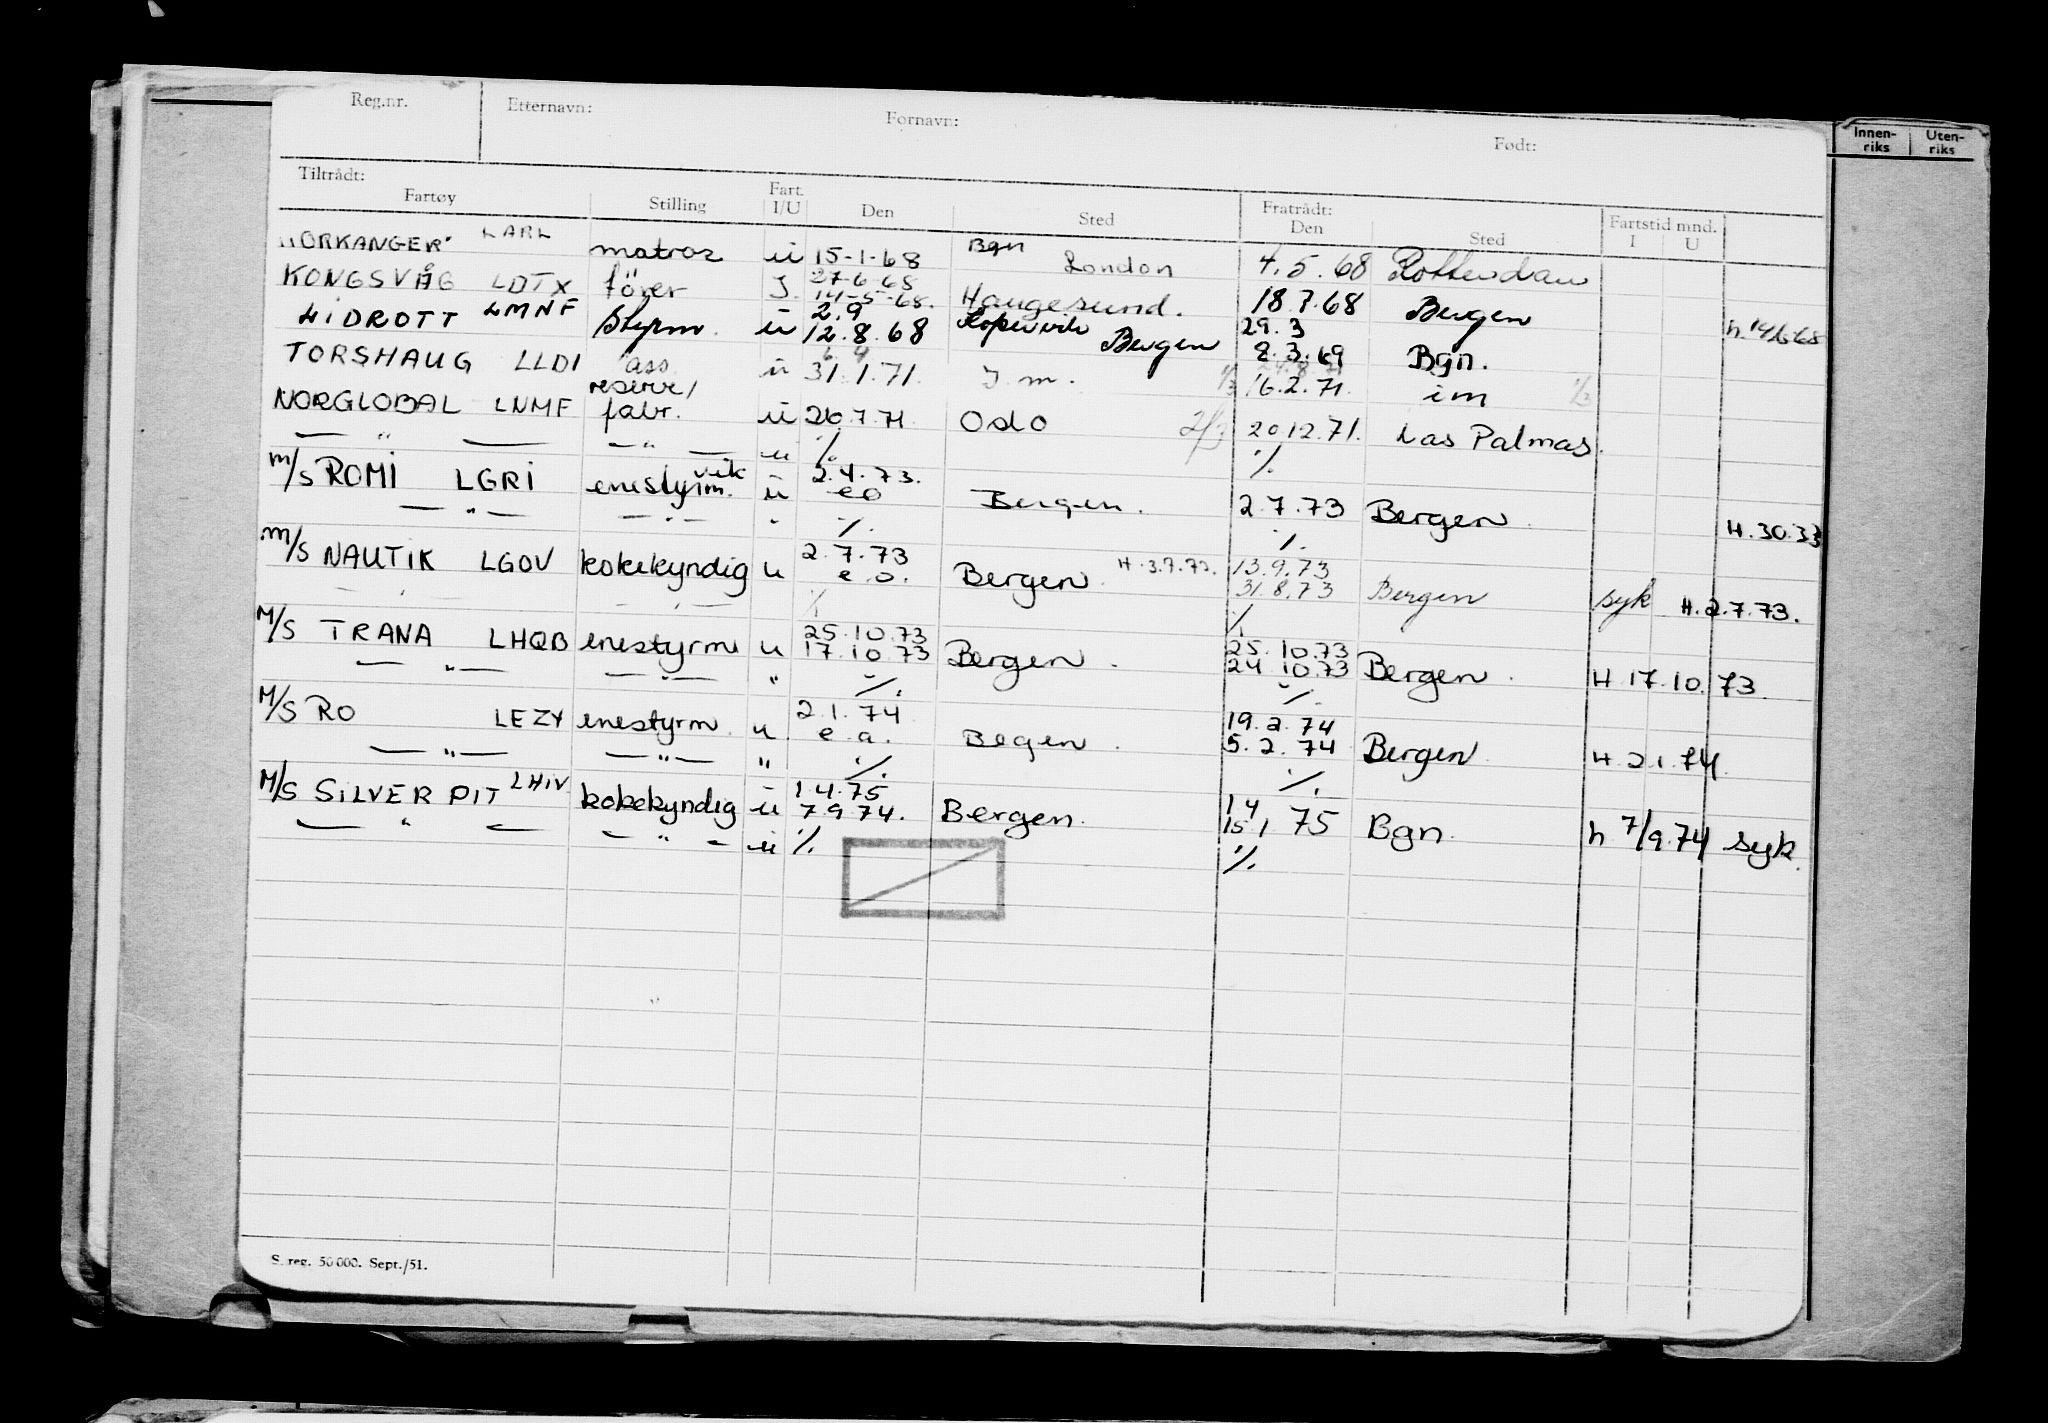 Reg.nr. Etternavn: Fornavn: Født: Innenriks Utenriks
Tiltrådt: Fratrådt: Fartstid mnd.
Fartøy Stilling Fart. I/U Den Sted Den Sted I U
"ORKANGER" LARL matros u 15-1-68 Bgn London 4.5.68 Rotterdam
KONGSVÅG LDTX fører I. 27-6-68 14-5-68. Haugesund. 18.7.68 Bergen h. 14/5-68
HIDROTT LMNF Styrm. u 2.9 12.8.68 Kopervik Bergen 29.3 8.3.69 Bgn.
TORSHAUG LLDI ass u 31.1.71. I.m. 1/3 16.2.71. im 1/3
NORGLOBAL LNMF reserve/ fabr. u 26.7.71. Oslo 2/3 20.12.71. Las Palmas.
— " — — " — u %. %.
m/s ROMI LGRI enestyrm. vik u 2.4.73. e o Bergen. 2.7.73 Bergen. H.30.33
— " — — " — " %. %.
m/s NAUTIK LGOV kokekyndig u 2.7.73 e.o. Bergen. H.3.7.73. 13.9.73 31.8.73 Bergen syk H.2.7.73.
— " — — " — %. %.
M/S TRANA LHQB enestyrm u 25.10.73 17.10.73 Bergen. 25.10.73 24.10.73 Bergen. H.17.10.73.
— " — — " — " %. %.
M/S RO LEZY enestyrm. u. 2.1.74 e.a. Begen. 19.2.74 5.2.74 Bergen. H.2.1.74.
— " — — " — " %. %.
M/S SILVER PIT LHIV kokekyndig u 1.4.75 7.9.74. Bergen. 1.4 15.1 75 Bgn. h 7/9.74 syk.
— " — — " — u %. %.
S. reg. 50 000. Sept./51.